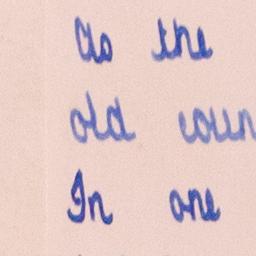 As the
old coun
In one